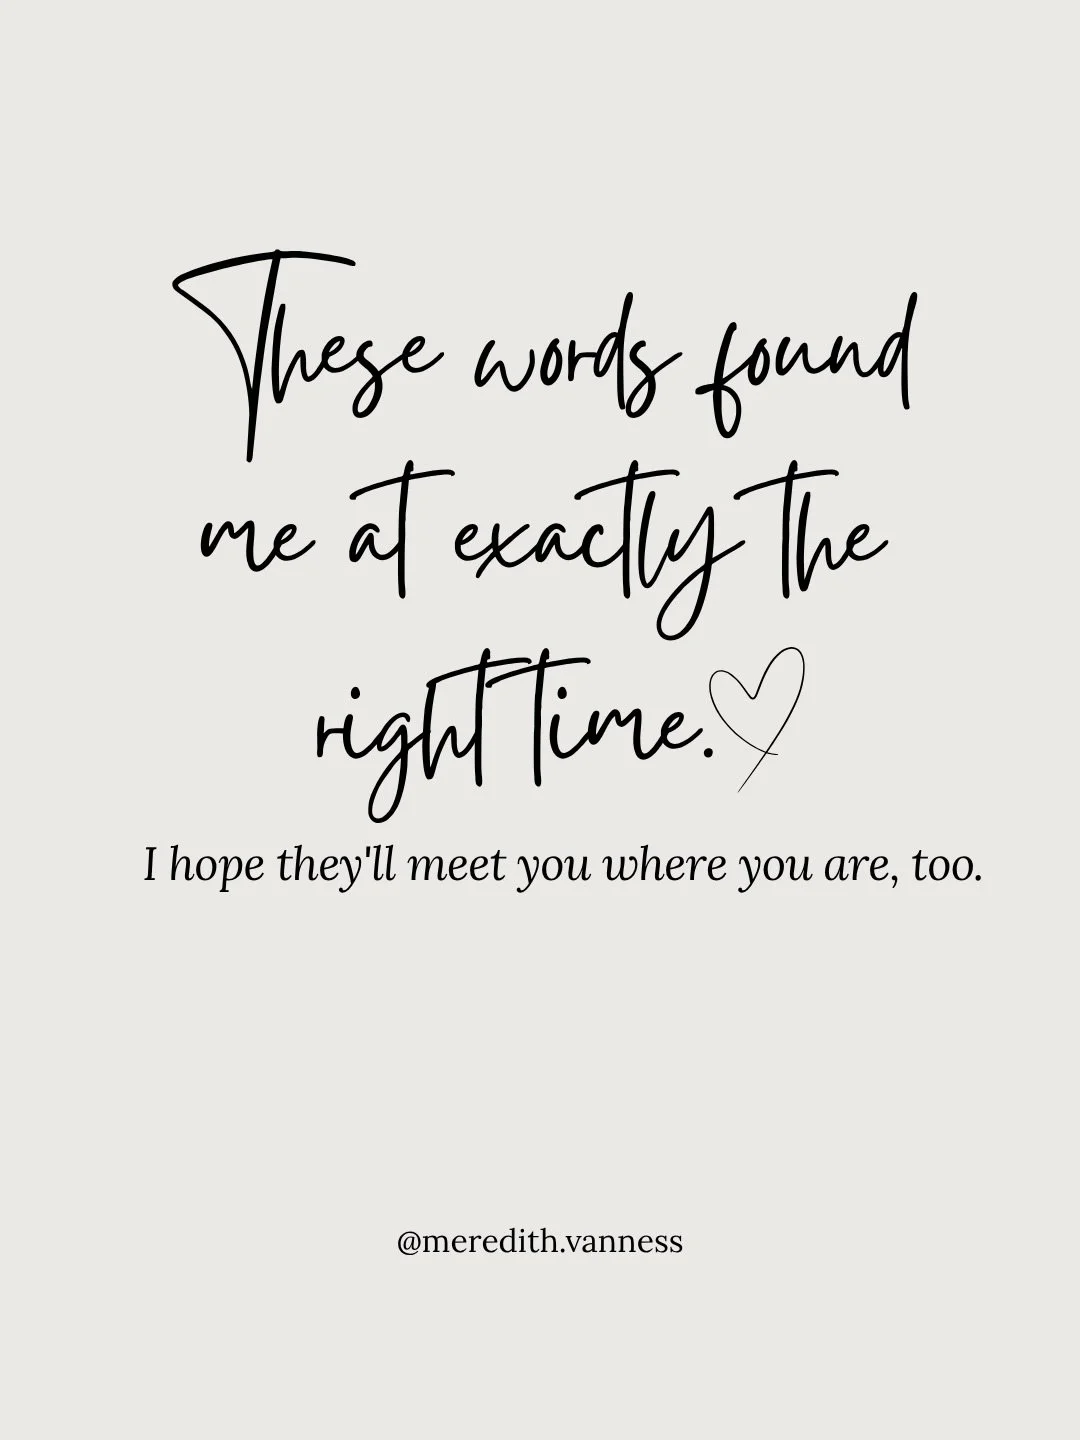 These words found
me at exactly the
right time.
I hope they'll meet you where you are, too.
@meredith.vanness